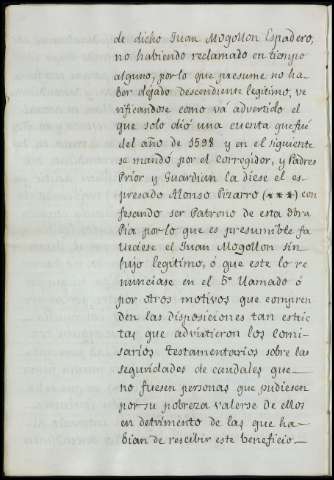 de dicho Juan Mogollon Espadero,
no habiendo reclamado en tiempo
alguno, por lo que presume no ha-
ber dejado descendiente legitimo, ve
rificandose como vá advertido el
que solo dió una cuenta que fué
del año de 1598 y en el siguiente
se mandó por el Corregidor, y Padres
Prior y Guardian la diese el es-
presado Alonso Pizarro (***) con
fesando ser Patrono de esta Obra
Pia por lo que es presumible fa-
lleciese el Juan Mogollon sin
hijo legitimo, ó que este lo re
nunciase en el 5º llamado ó
por otros motivos que compren
den las disposiciones tan estric
tas que advirtieron los Comi-
sarios testamentarios sobre las
seguridades de caudales que
no fuesen personas que pudiesen
por su pobreza valerse de ellos
en detrimento de las que ha-
bian de rescibir este beneficio